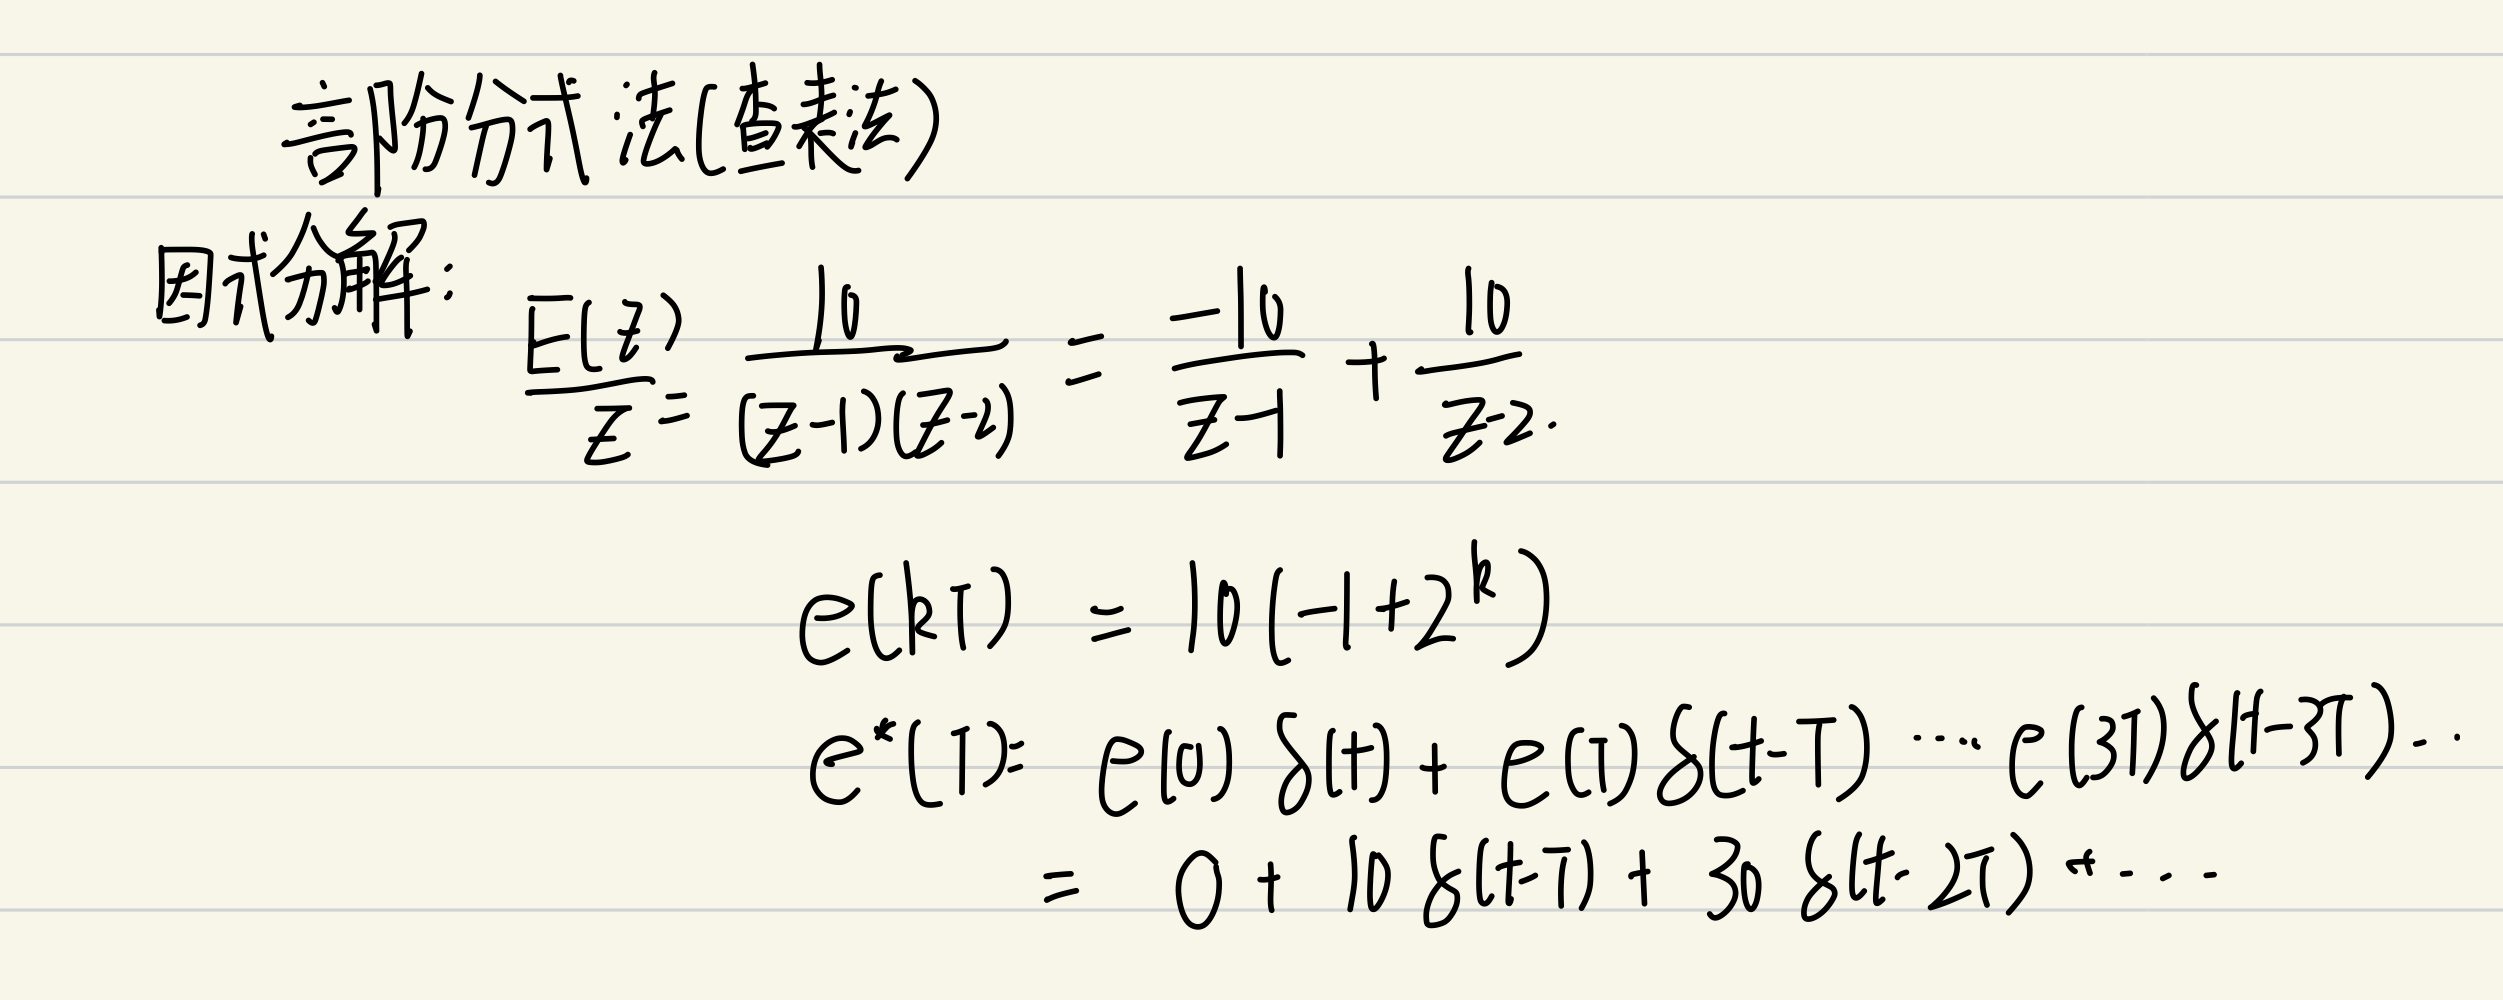 部分分式法(查表法)
因式分解:
E(z)/z = 10/((z-1)(z-2)) = -10/(z-1) + 10/(z-2).
e(kT) = 10(-1+2^k)
e*(T) = e(0)δ(t) + e(T)δ(t-T) ···· e(3T)δ(t-3T) - ·
= 0 + 10δ(t-T) + 30δ(t-2T) + - - -